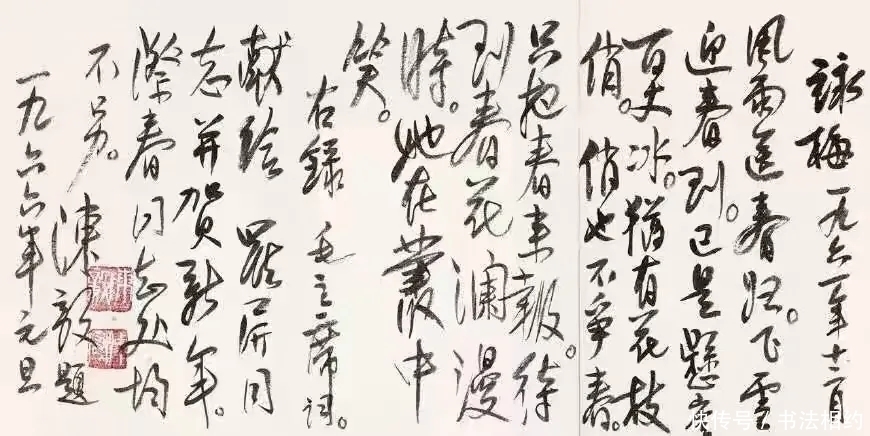 詠梅 一九六一年十二月
風雨送春归。飞雪
迎春到。已是懸崖
百丈冰。猶有花枝
俏。俏也不争春。
只把春来報。待
到春花瀾漫
時。她在叢中
笑。
右錄 毛主席词。
献给 羅屏同
志并贺新年。
際春同志处均
不另。陳毅題
一九六六年元旦
快传号/书法相约